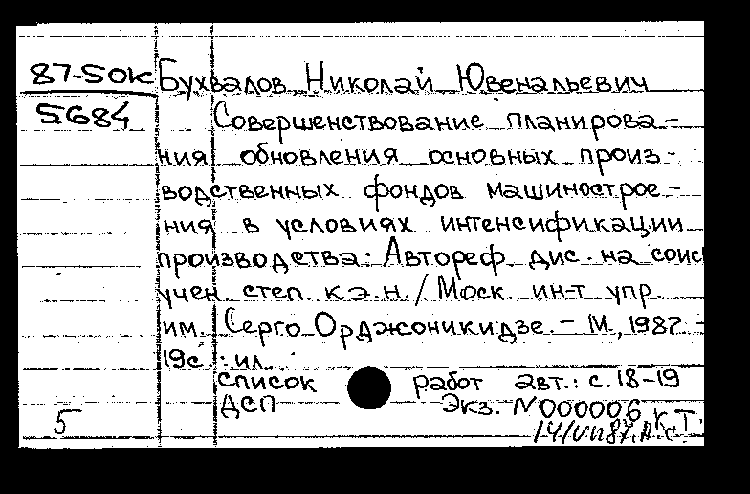 87-50к Бухвалов, Николай Ювенальевич
5684 Совершенствование планирова-
ния обновления основных произ-
водственных фондов машинострое-
ния в условиях интенсификации
производства: Автореф. дис. на соиск
учен. степ. к.э.н. / Моск. ин-т упр.
им. Серго Орджоникидзе. - М., 1987. -
19с.: ил.
Список работ авт.: с. 18-19
ДСП Экз. N000006
5 14/VII87. К.Т.